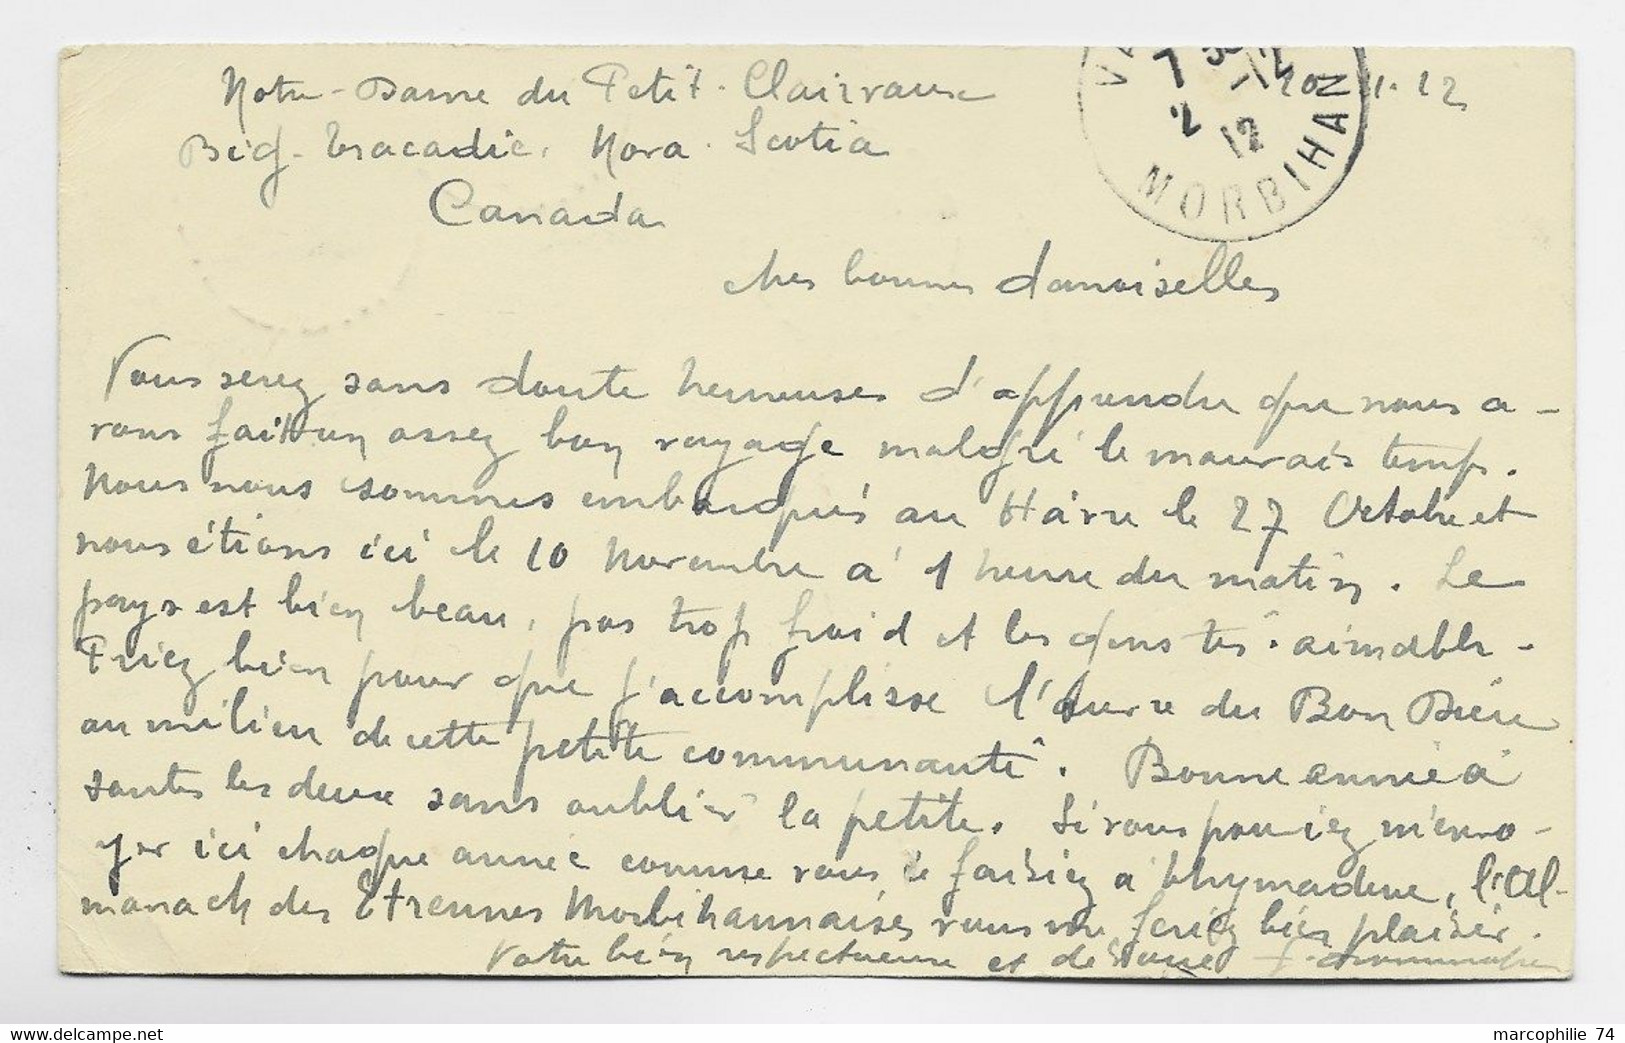 Notre-Dame du Petit-Clairvaux
Big-Tracadie. Nova-Scotia
Canada
MORBIHAN
7
2 12
12
Mes bonnes damoiselles
Vous serez sans doute heureuses d'apprendre que nous a-
vons fait un assez bon voyage malgré le mauvais temps.
Nous nous sommes embarqués au Hâvre le 27 Octobre et
nous étions ici le 10 Novembre à 1 heure du matin. Le
pays est bien beau, pas trop froid et les gens tès-aimables-
Priez bien pour que j'accomplisse l'œuvre du Bon Dieu
au milieu de cette petite communauté. Bonne année à
toutes les deux sans oublier la petite. Si vous pouviez m'envo-
yer ici chaque année comme vous le faisiez à thymadeuc, l'Al-
manach des Étrennes Morbihannaises vous me feriez bien plaisir.
Votre bien respectueuse et dévoué
marcophilie 74